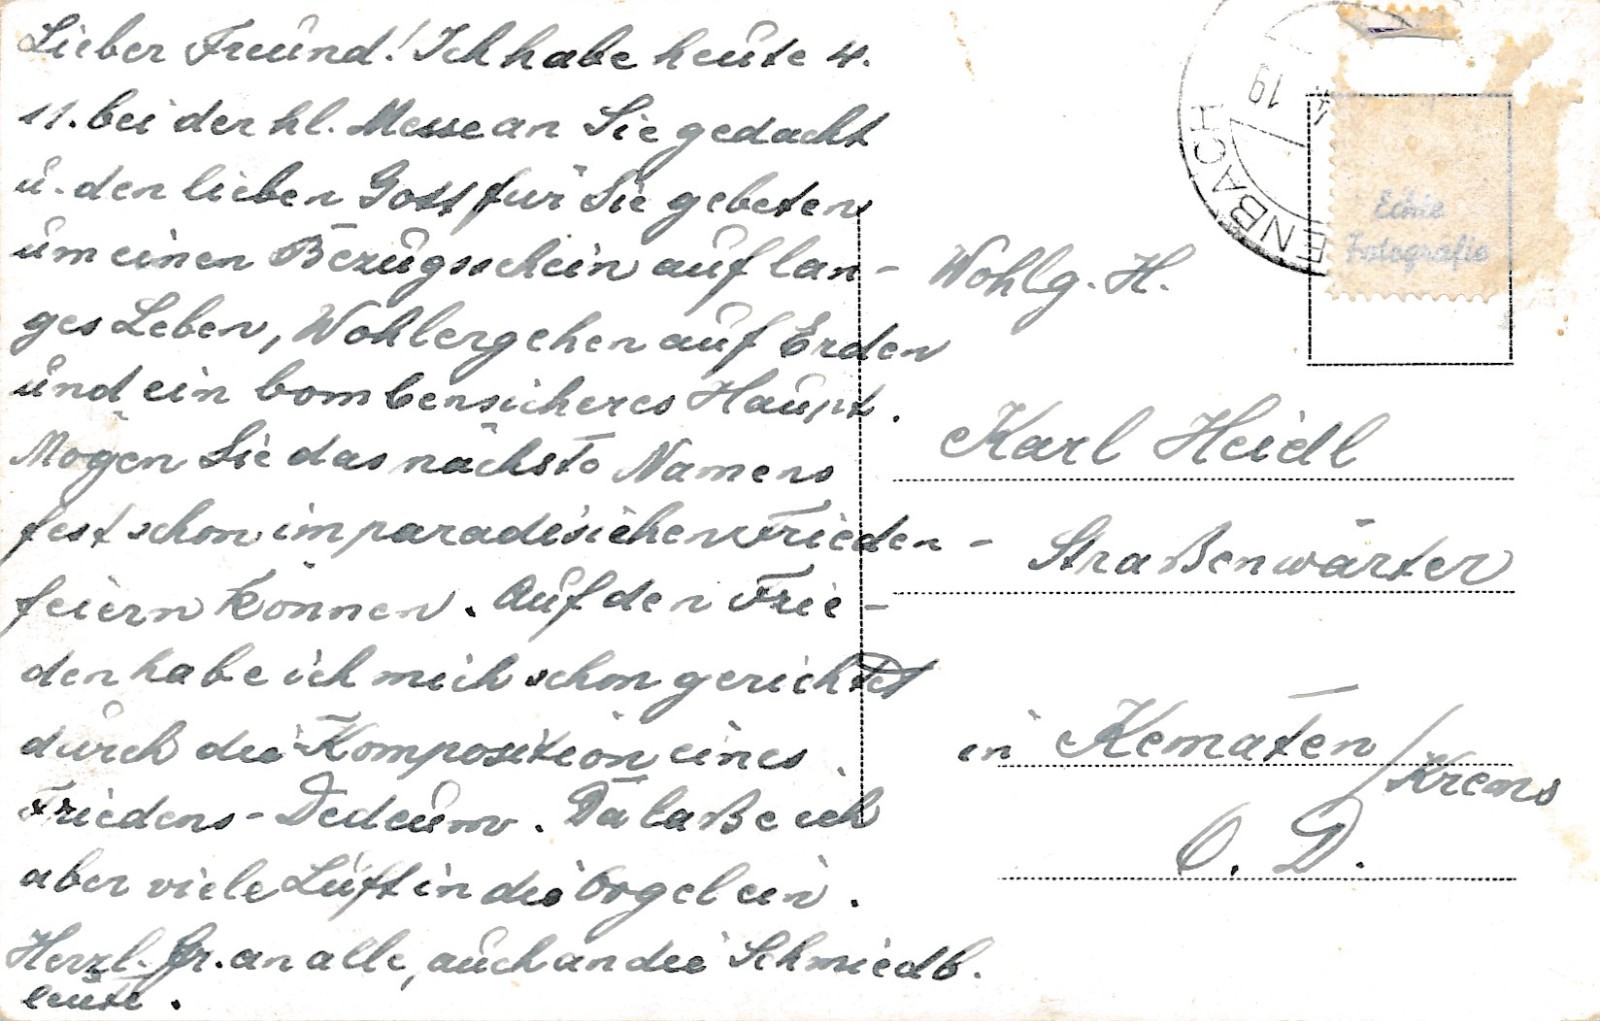 Lieber Freund! Ich habe heute 4.
11. bei der hl. Messe an Sie gedacht
u. den lieben Gott für Sie gebeten
um einen Bezugsschein auf lan-
ges Leben, Wohlergehen auf Erden
und ein bombensicheres Haupt.
Mögen Sie das nächste Namens
fest schon im paradisischen Frieden -
feiern können. Auf den Frie-
den habe ich mich schon gerichtet
durch die Komposition eines
Friedens-Dedeums. Da laße ich
aber viele Luft in die Orgel ein.
Herzl. Gr. an alle, auch an die Schmiedb.
leute.
ENBACH
4. 19
Echte
Fotografie
Wohlg. H.
Karl Heidl
Straßenwärter
in Kematen/Krems
O. D.